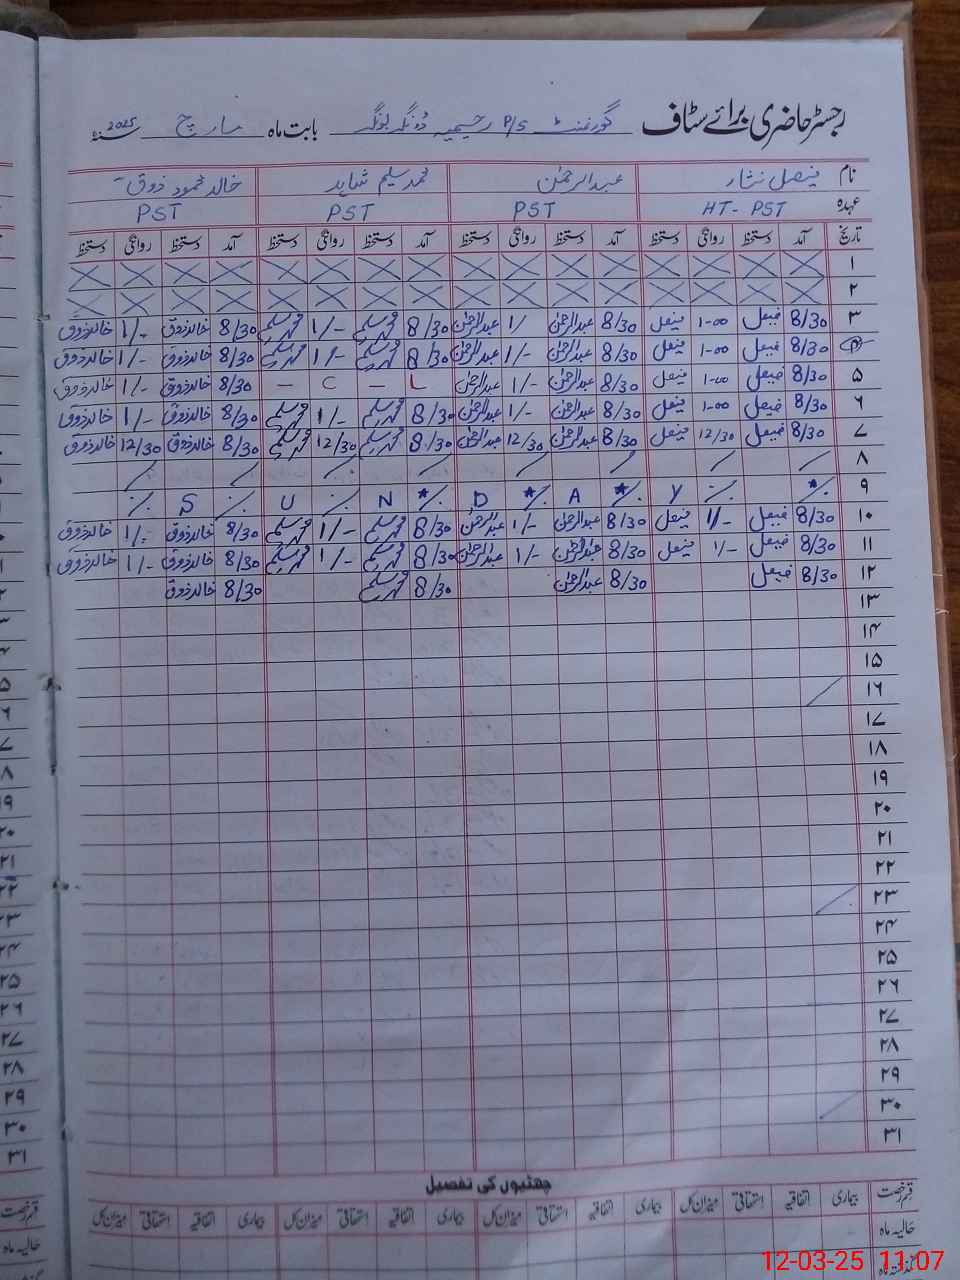 رجسٹر حاضری برائے سٹاف گورنمنٹ P/S رحیمیہ ڈونگہ بونگہ بابت ماہ مارچ 2025
نام فیصل نثار عبدالرحمٰن محمد سلیم شاہد خالد محمود ذوق
عہدہ HT-PST PST PST PST
تاریخ آمد دستخط روانگی دستخط آمد دستخط روانگی دستخط آمد دستخط روانگی دستخط آمد دستخط روانگی دستخط
۱
۲
۳ 8/30 فیصل 1-00 فیصل 8/30 عبدالرحمٰن 1/ عبدالرحمٰن 8/30 محمد سلیم 1/- محمد سلیم 8/30 خالد ذوق 1/- خالد ذوق
۴ 8/30 فیصل 1-00 فیصل 8/30 عبدالرحمٰن 1/- عبدالرحمٰن 8/30 محمد سلیم 1/- محمد سلیم 8/30 خالد ذوق 1/- خالد ذوق
۵ 8/30 فیصل 1-00 فیصل 8/30 عبدالرحمٰن 1/- عبدالرحمٰن L - C - 8/30 خالد ذوق 1/- خالد ذوق
۶ 8/30 فیصل 1-00 فیصل 8/30 عبدالرحمٰن 1/- عبدالرحمٰن 8/30 محمد سلیم 1/- محمد سلیم 8/30 خالد ذوق 1/- خالد ذوق
۷ 8/30 فیصل 12/30 فیصل 8/30 عبدالرحمٰن 12/30 عبدالرحمٰن 8/30 محمد سلیم 12/30 محمد سلیم 8/30 خالد ذوق 12/30 خالد ذوق
۸
۹ S U N D A Y
۱۰ 8/30 فیصل 1/- فیصل 8/30 عبدالرحمٰن 1/- عبدالرحمٰن 8/30 محمد سلیم 1/- محمد سلیم 8/30 خالد ذوق 1/- خالد ذوق
۱۱ 8/30 فیصل 1/- فیصل 8/30 عبدالرحمٰن 1/- عبدالرحمٰن 8/30 محمد سلیم 1/- محمد سلیم 8/30 خالد ذوق 1/- خالد ذوق
۱۲ 8/30 فیصل 8/30 عبدالرحمٰن 8/30 محمد سلیم 8/30 خالد ذوق
۱۳
۱۴
۱۵
۱۶
۱۷
۱۸
۱۹
۲۰
۲۱
۲۲
۲۳
۲۴
۲۵
۲۶
۲۷
۲۸
۲۹
۳۰
۳۱
چھٹیوں کی تفصیل
قسم رخصت بیماری اتفاقیہ استحقاقی میزان کل بیماری اتفاقیہ استحقاقی میزان کل بیماری اتفاقیہ استحقاقی میزان کل بیماری اتفاقیہ استحقاقی میزان کل
حالیہ ماہ
گذشتہ ماہ
12-03-25 11:07